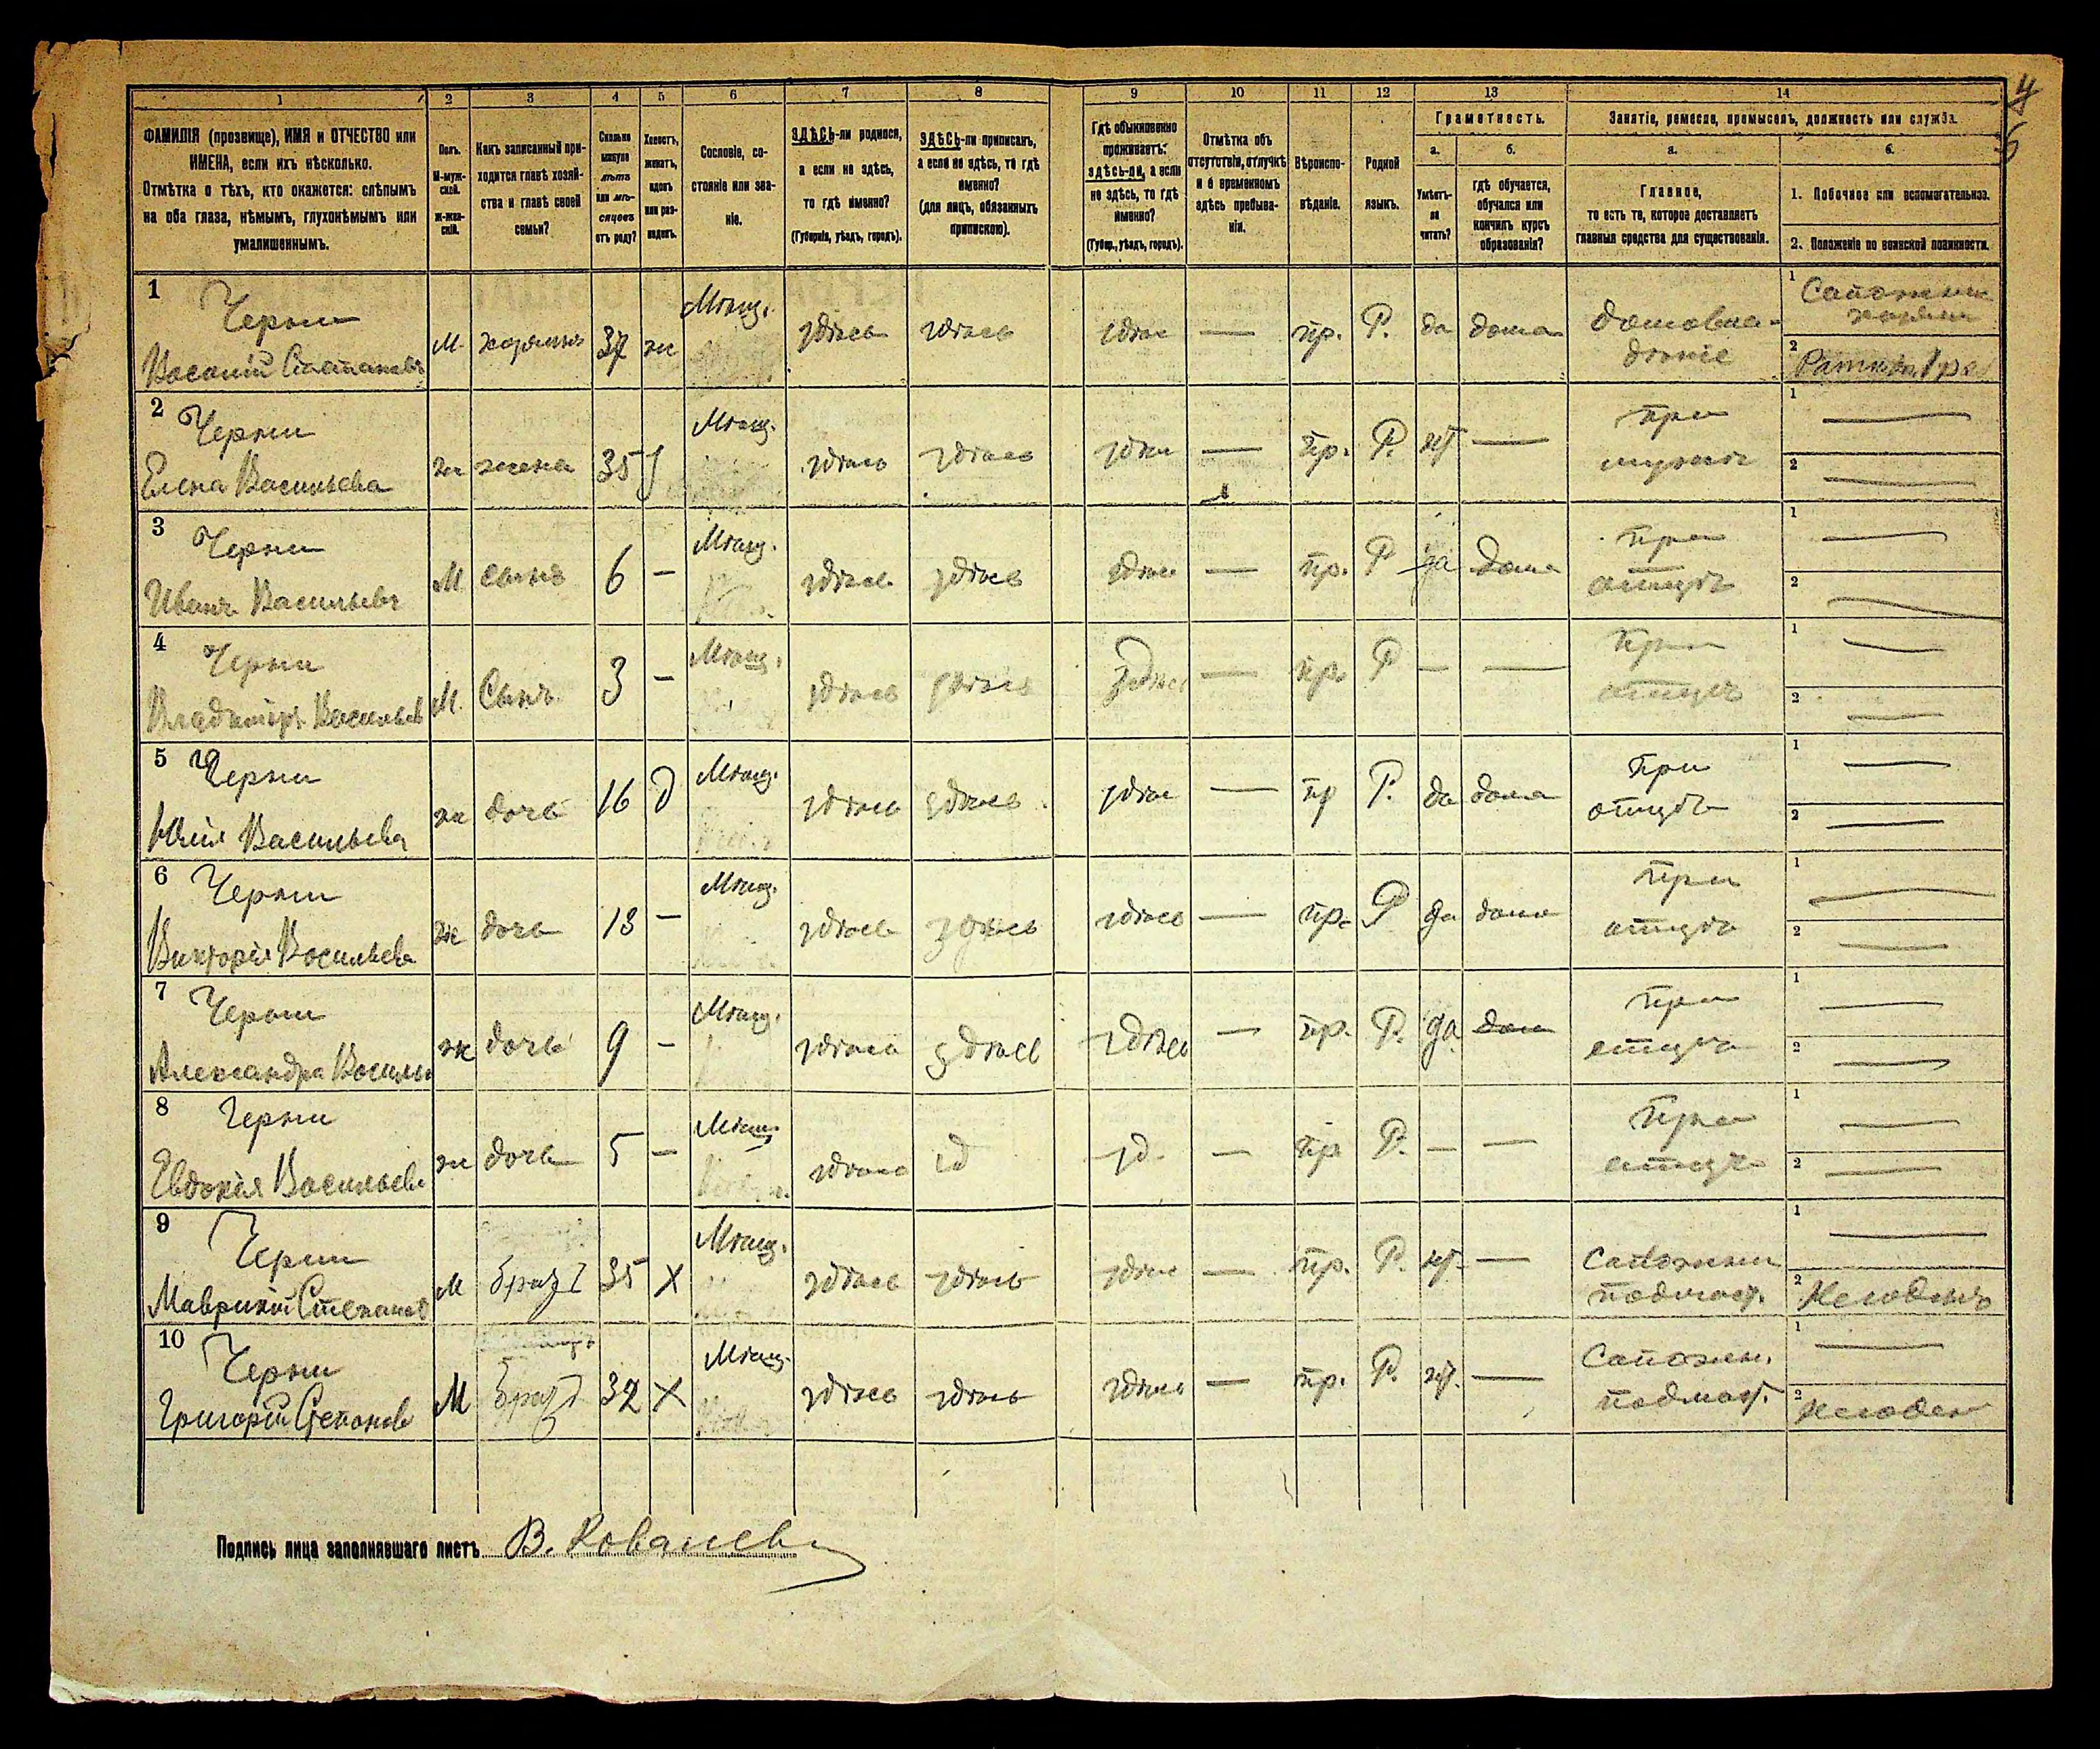 4
1 2 3 4 5 6 7 8 9 10 11 12 13 14
ФАМИЛІЯ (прозвище), ИМЯ и ОТЧЕСТВО или
ИМЕНА, если ихъ нѣсколько.
Отмѣтка о тѣхъ, кто окажется: слѣпымъ
на оба глаза, нѣмымъ, глухонѣмымъ или
умалишеннымъ.
Полъ.
М-муж-
ской.
Ж-жен-
скій.
Какъ записанный при-
ходится главѣ хозяй-
ства и главѣ своей
семьи?
Сколько
минуло
лѣтъ
или мѣ-
сяцевъ
отъ роду?
Холостъ,
женатъ,
вдовъ
или раз-
веденъ.
Сословіе, со-
стояніе или зва-
ніе.
ЗДѢСЬ-ли родился,
а если не здѣсь,
то гдѣ именно?
(Губернія, уѣздъ, городъ).
ЗДѢСЬ-ли приписанъ,
а если не здѣсь, то гдѣ
именно?
(для лицъ, обязанныхъ
припискою).
Гдѣ обыкновенно
проживаетъ:
здѣсь-ли, а если
не здѣсь, то гдѣ
именно?
(Губер., уѣздъ, городъ).
Отмѣтка объ
отсутствіи, отлучкѣ
и о временномъ
здѣсь пребыва-
ніи.
Вѣроиспо-
вѣданіе.
Родной
языкъ.
Грамотность.
а.
Умѣетъ-
ли
читать?
б.
гдѣ обучается,
обучался или
кончилъ курсъ
образованія?
Занятіе, ремесло, промыселъ, должность или служба.
а.
Главное,
то есть то, которое доставляетъ
главныя средства для существованія.
б.
1. Побочное или вспомогательное.
2. Положеніе по воинской повинности.
1 Черни
Василій Степановъ
М. хозяинъ 37 ж Мѣщ. здѣсь здѣсь здѣс — пр. Р. да дома
домовла-
дѣніе
1 Сапожник
хозяин
2
2 Черни
Елена Васильева
ж жена 35 Мѣщ. здѣсь здѣсь здѣс — пр. Р. нѣт —
при
мужѣ
1 —
2 —
3 Черни
Иванъ Васильевъ
М. сынъ 6 — Мѣщ. здѣсь здѣсь здѣс — пр. Р да дома
при
отцѣ
1 —
2 —
4 Черни
Владиміръ Васильев
М. Сынъ 3 — Мѣщ. здѣсь здѣсь здѣсь — пр. Р — —
при
отцѣ
1 —
2 —
5 Черни
Юлія Васильева
ж дочь 16 д Мѣщ. здѣсь здѣсь здѣс — пр Р. да дома
при
отцѣ
1 —
2 —
6 Черни
Викторія Васильева
ж дочь 13 — Мѣщ. здѣсь здѣсь здѣсь — пр. Р да дома
при
отцѣ
1 —
2 —
7 Черни
Александра Василь
ж дочь 9 — Мѣщ. здѣсь здѣсь здѣсь — пр. Р. да дом
при
отцѣ
1 —
2 —
8 Черни
Евдокія Васильева
ж дочь 5 — Мѣщ. здѣсь зд зд. — пр Р. — —
при
отцѣ
1 —
2 —
9 Черни
Маврикій Степанов
М брат 35 Х Мѣщ. здѣсь здѣсь здѣс — пр. Р. нѣт. —
Сапожник
подмаст.
1 —
2 Негоденъ
10 Черни
Григорій Степановъ
М брат 32 Х Мѣщ. здѣсь здѣсь здѣсь — пр. Р. нѣт. —
Сапожн.
подмаст.
1 —
2 негоден
Подпись лица заполнявшаго листъ В. Ковалев